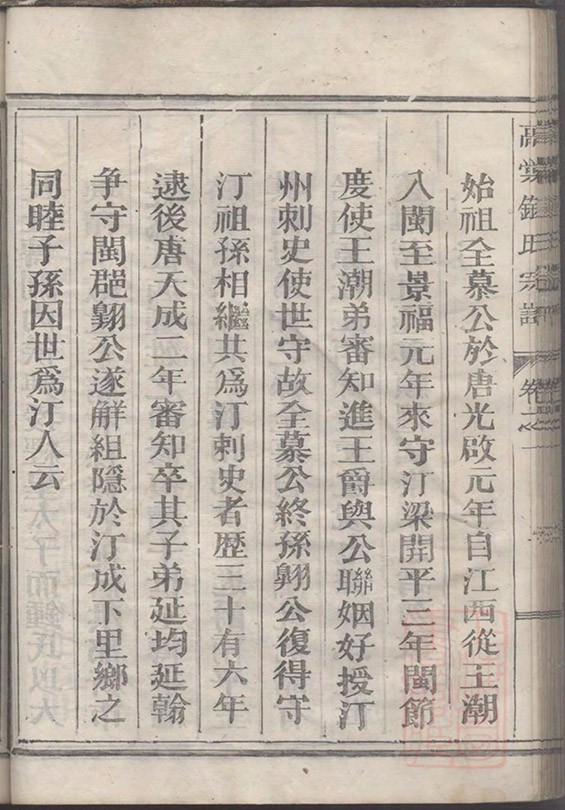 始祖全慕公於唐光啟元年自江西從王潮
入閩至景福元年來守汀梁開平三年閩節
度使王潮弟審知進王爵與公聯姻好授汀
州刺史使世守故全慕公終孫翱公復得守
汀祖孫相繼共爲汀刺史者歴三十有六年
逮後唐天成二年審知卒其子弟延均延翰
争守閩郡翱公遂解組隱於汀成下里鄉之
同睦子孫因世爲汀人云
氏宗譜 卷之一